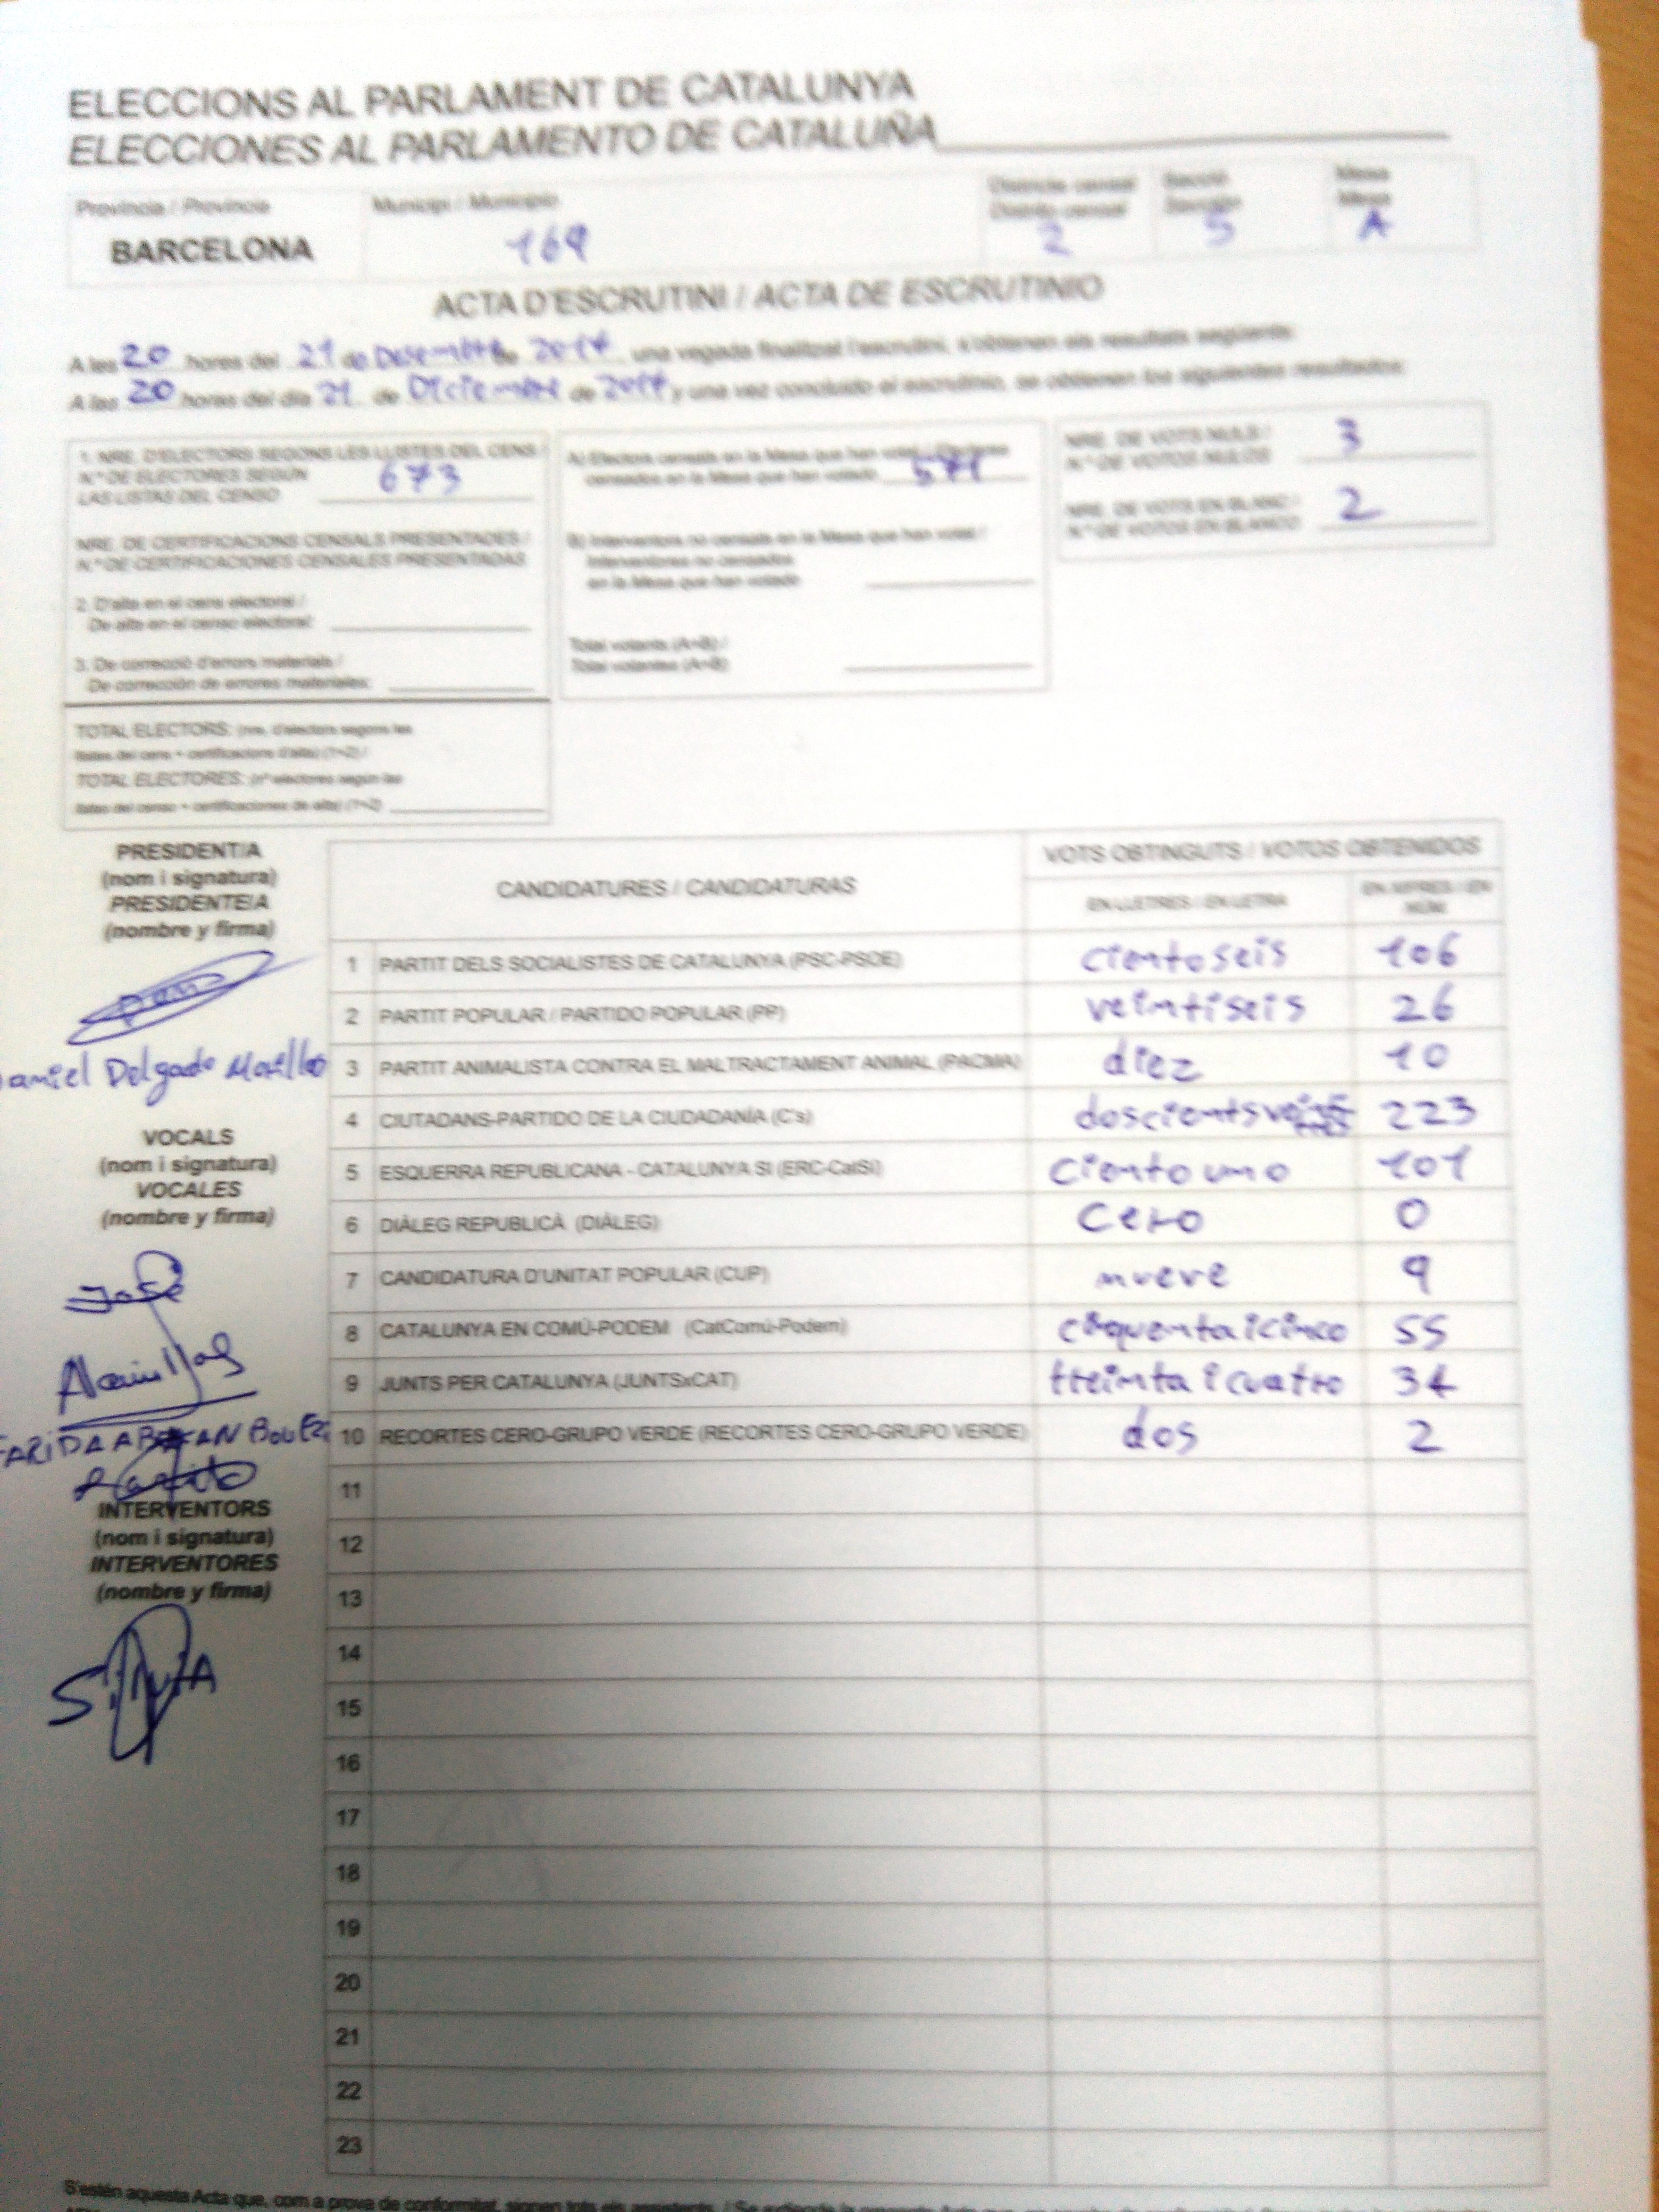 ELECCIONS AL PARLAMENT DE CATALUNYA
ELECCIONES AL PARLAMENTO DE CATALUÑA
Província / Provincia
Municipi / Municipio
Districte censal
Distrito censal
Secció
Sección
Mesa
Mesa
BARCELONA
169
2
5
A
ACTA D'ESCRUTINI / ACTA DE ESCRUTINIO
A les 20 hores del 21 de Desembre de 2017 una vegada finalitzat l'escrutini, s'obtenen els resultats següents:
A las 20 horas del día 21 de Diciembre de 2017 y una vez concluido el escrutinio, se obtienen los siguientes resultados:
1. NRE. D'ELECTORS SEGONS LES LLISTES DEL CENS /
N.º DE ELECTORES SEGÚN
LAS LISTAS DEL CENSO 673
NRE. DE CERTIFICACIONS CENSALS PRESENTADES /
N.º DE CERTIFICACIONES CENSALES PRESENTADAS
2. D'alta en el cens electoral /
De alta en el censo electoral:
3. De correcció d'errors materials /
De corrección de errores materiales:
TOTAL ELECTORS: (nre. d'electors segons les
llistes del cens + certificacions d'alta) (1+2) /
TOTAL ELECTORES: (nº electores según las
listas del censo + certificaciones de alta) (1+2)
A) Electors censats en la Mesa que han votat / Electores
censados en la Mesa que han votado 571
B) Interventors no censats en la Mesa que han votat /
Interventores no censados
en la Mesa que han votado
Total votants (A+B) /
Total votantes (A+B)
NRE. DE VOTS NULS /
N.º DE VOTOS NULOS 3
NRE. DE VOTS EN BLANC /
N.º DE VOTOS EN BLANCO 2
PRESIDENT/A
(nom i signatura)
PRESIDENTE/A
(nombre y firma)
Daniel Delgado
VOCALS
(nom i signatura)
VOCALES
(nombre y firma)
José
FARIDA
INTERVENTORS
(nom i signatura)
INTERVENTORES
(nombre y firma)
SILVIA
CANDIDATURES / CANDIDATURAS
VOTS OBTINGUTS / VOTOS OBTENIDOS
EN LLETRES / EN LETRA
EN XIFRES / EN
NÚM
1 PARTIT DELS SOCIALISTES DE CATALUNYA (PSC-PSOE) ciento seis 106
2 PARTIT POPULAR / PARTIDO POPULAR (PP) veintiseis 26
3 PARTIT ANIMALISTA CONTRA EL MALTRACTAMENT ANIMAL (PACMA) diez 10
4 CIUTADANS-PARTIDO DE LA CIUDADANÍA (C's) 223
5 ESQUERRA REPUBLICANA - CATALUNYA SI (ERC-CatSí) ciento uno 101
6 DIÀLEG REPUBLICÀ (DIÀLEG) cero 0
7 CANDIDATURA D'UNITAT POPULAR (CUP) nueve 9
8 CATALUNYA EN COMÚ-PODEM (CatComú-Podem) cinquenta i cinco 55
9 JUNTS PER CATALUNYA (JUNTSxCAT) treinta i cuatro 34
10 RECORTES CERO-GRUPO VERDE (RECORTES CERO-GRUPO VERDE) dos 2
11
12
13
14
15
16
17
18
19
20
21
22
23
S'estén aquesta Acta que, com a prova de conformitat, signen tots els assistents. /